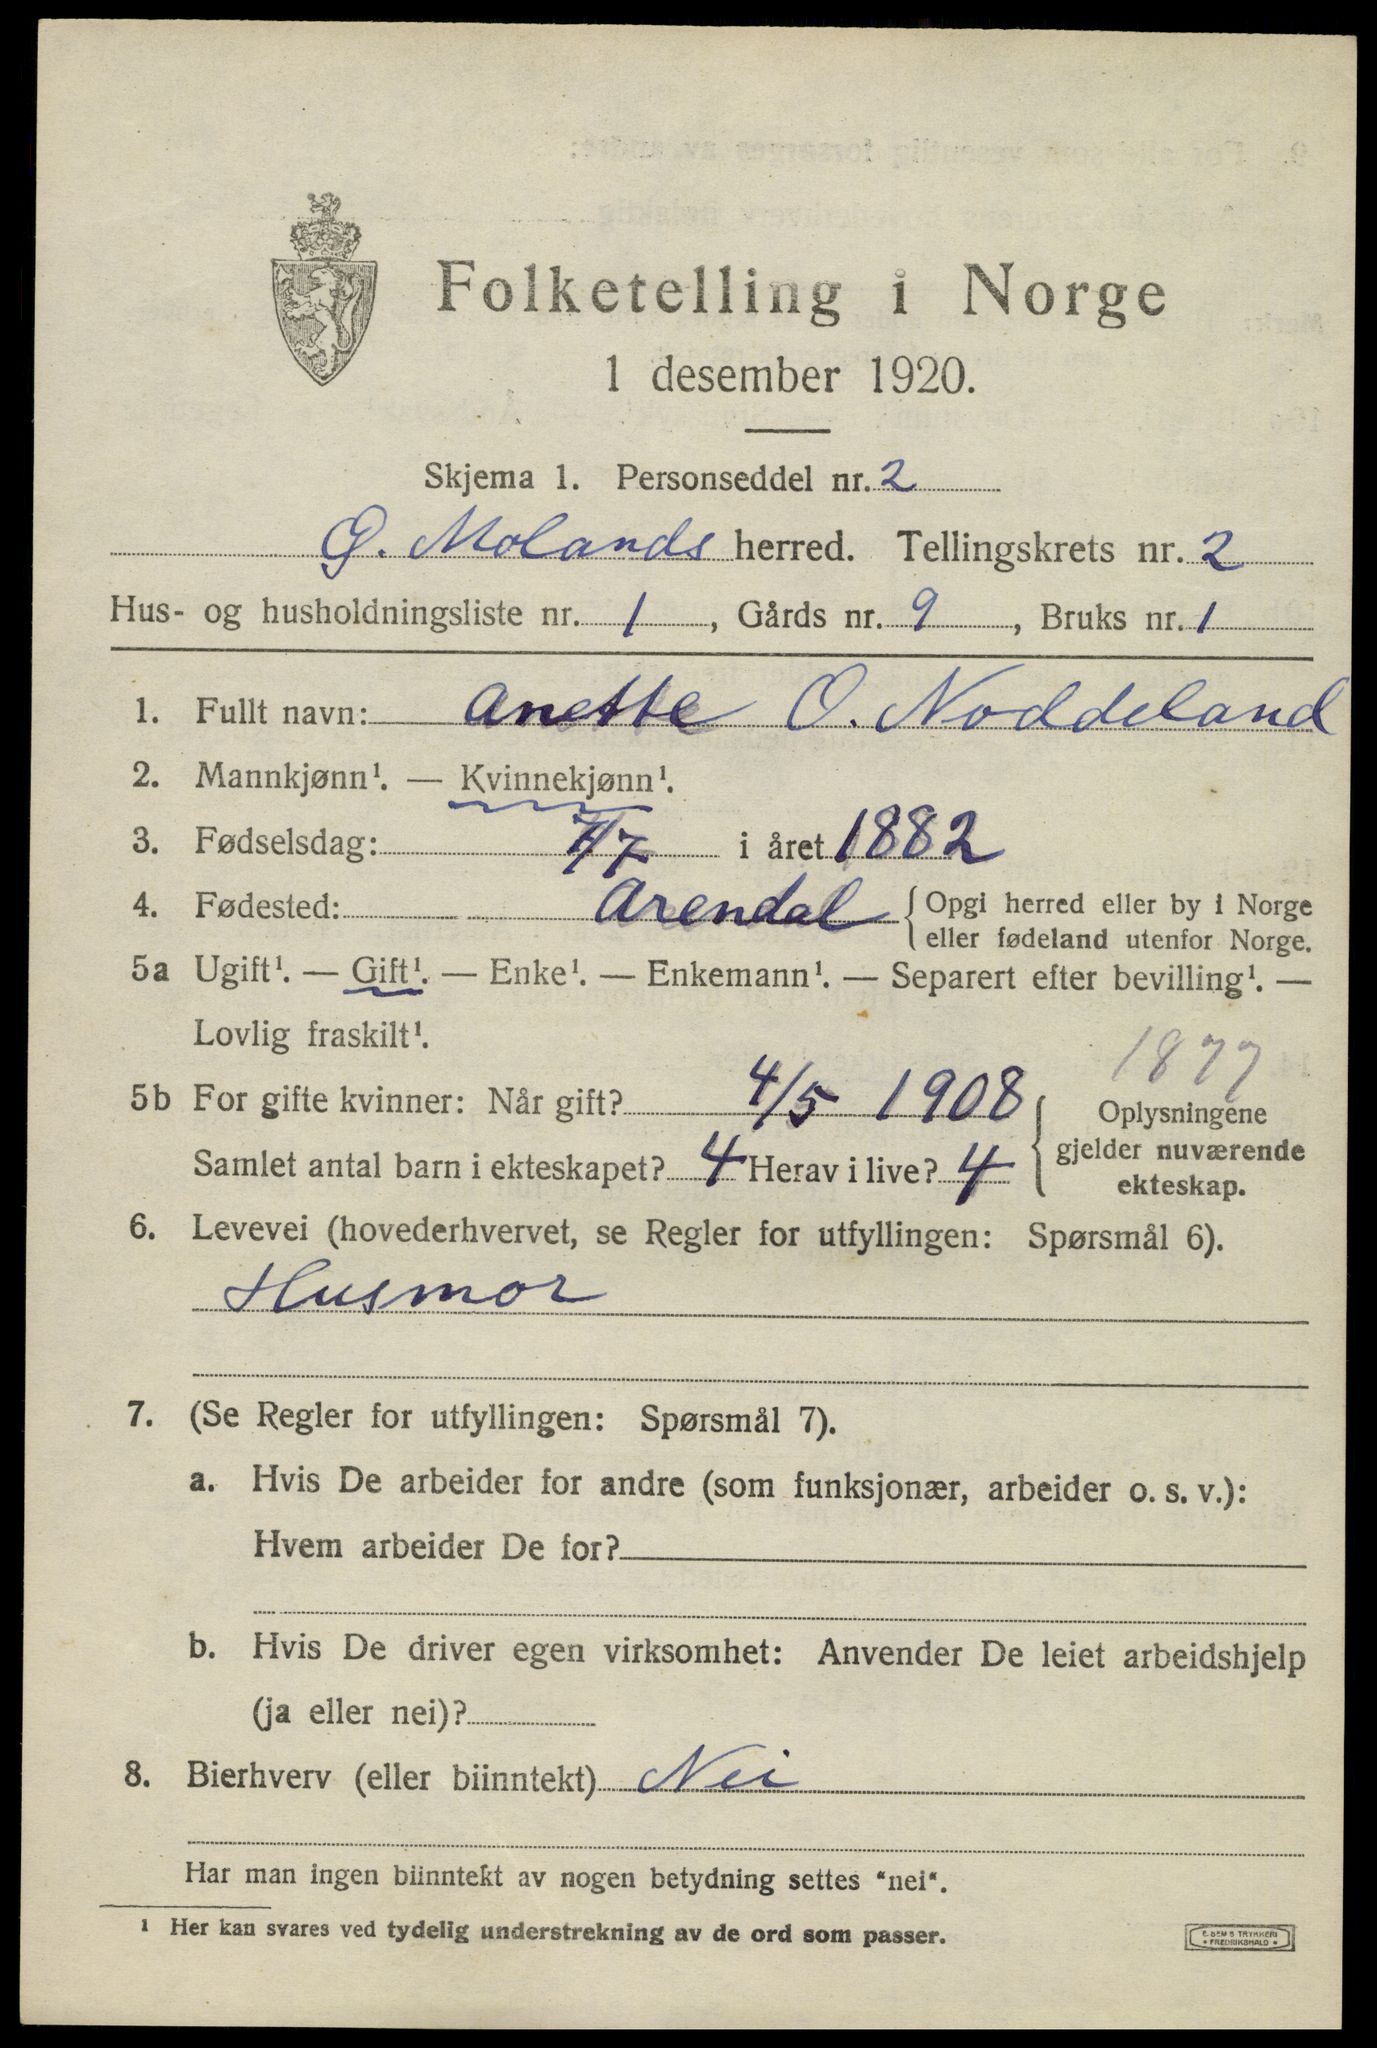 Folketelling i Norge
1 desember 1920.
Skjema 1. Personseddel nr. 2
Ø. Molands herred. Tellingskrets nr. 2
Hus- og husholdningsliste nr. 1, Gårds nr. 9, Bruks nr. 1
1. Fullt navn: Anette O. Noddeland
2. Mannkjønn¹. — Kvinnekjønn¹.
3. Fødselsdag: 7/7 i året 1882
4. Fødested: Arendal { Opgi herred eller by i Norge
eller fødeland utenfor Norge.
5a Ugift¹. — Gift¹. — Enke¹. — Enkemann¹. — Separert efter bevilling¹. —
Lovlig fraskilt¹.
1877
5b For gifte kvinner: Når gift? 4/5 1908
Samlet antal barn i ekteskapet? 4 Herav i live? 4
Oplysningene
gjelder nuværende
ekteskap.
6. Levevei (hovederhvervet, se Regler for utfyllingen: Spørsmål 6).
Husmor
7. (Se Regler for utfyllingen: Spørsmål 7).
a. Hvis De arbeider for andre (som funksjonær, arbeider o. s. v.):
Hvem arbeider De for?
b. Hvis De driver egen virksomhet: Anvender De leiet arbeidshjelp
(ja eller nei)?
8. Bierhverv (eller biinntekt) Nei
Har man ingen biinntekt av nogen betydning settes "nei".
¹ Her kan svares ved tydelig understrekning av de ord som passer.
E. SEM'S TRYKKERI
FREDRIKSHALD